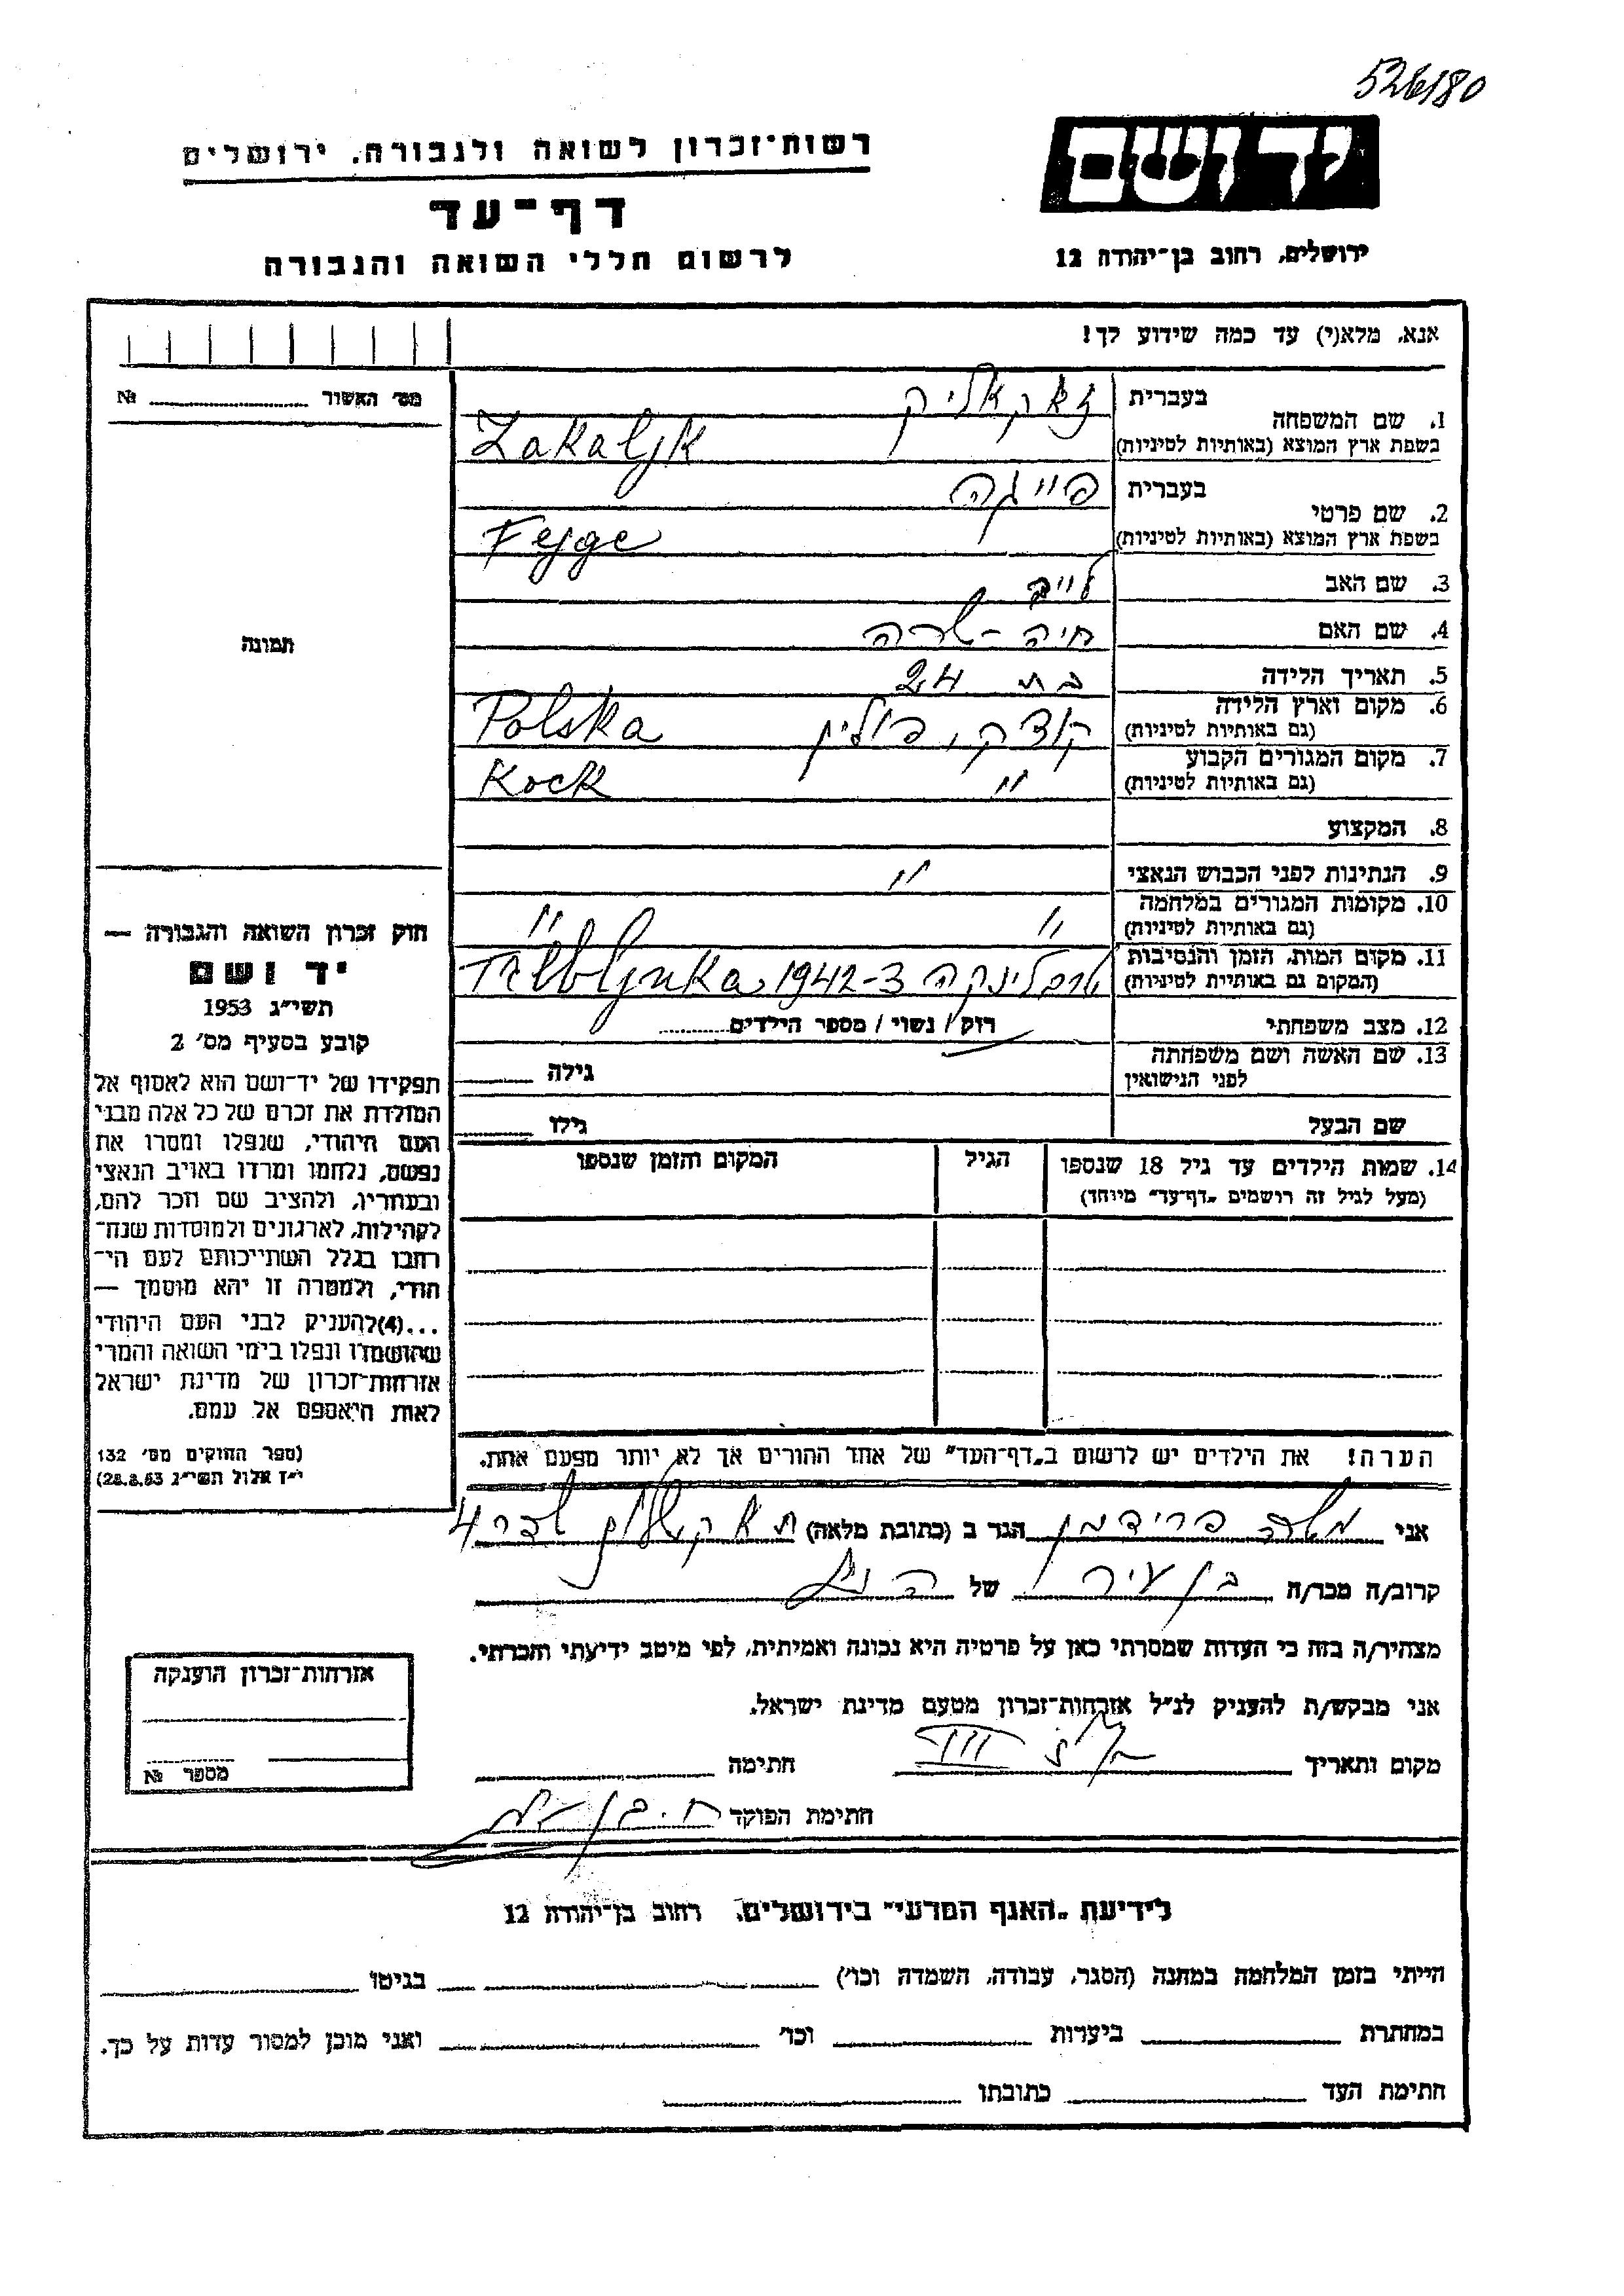 526/80
יד ושם
רשות־זכרון לשואה ולגבורה. ירושלים
דף־עד
לרשום חללי השואה והגבורה
ירושלים, רחוב בן־יהודה 12
אנא, מלא(י) עד כמה שידוע לך!
מס׳ האשור №
1. שם המשפחה בעברית זאקאליק
בשפת ארץ המוצא (באותיות לטיניות) Zakaljk
2. שם פרטי בעברית פייגה
בשפת ארץ המוצא (באותיות לטיניות) Fejge
3. שם האב לייב
4. שם האם חיה-שרה
5. תאריך הלידה בת 24
6. מקום וארץ הלידה קוצק, פולין Polska
(גם באותיות לטיניות)
7. מקום המגורים הקבוע " Kock
(גם באותיות לטיניות)
8. המקצוע
9. הנתינות לפני הכבוש הנאצי "
10. מקומות המגורים במלחמה " "
(גם באותיות לטיניות)
11. מקום המות, הזמן והנסיבות טרבלינקה 1942-3
(המקום גם באותיות לטיניות)
12. מצב משפחתי רווק / נשוי / מספר הילדים
13. שם האשה ושם משפחתה גילה
לפני הנישואין
שם הבעל גילו
14. שמות הילדים עד גיל 18 שנספו הגיל המקום והזמן שנספו
(מעל לגיל זה רושמים „דף־עד״ מיוחד)
הערה! את הילדים יש לרשום ב„דף־העד״ של אחד ההורים אך לא יותר מפעם אחת.
תמונה
חוק זכרון השואה והגבורה —
יד ושם
תשי״ג 1953
קובע בסעיף מס׳ 2
תפקידו של יד־ושם הוא לאסוף אל
המולדת את זכרם של כל אלה מבני
העם היהודי, שנפלו ומסרו את
נפשם, נלחמו ומרדו באויב הנאצי
ובעוזריו, ולהציב שם וזכר להם,
לקהילות, לארגונים ולמוסדות שנח־
רבו בגלל השתייכותם לעם הי־
הודי, ולמטרה זו יהא מוסמך —
...(4)להעניק לבני העם היהודי
שהושמדו ונפלו בימי השואה והמרי
אזרחות־זכרון של מדינת ישראל
לאות היאספם אל עמם.
(ספר החוקים מס׳ 132
י״ז אלול תשי״ג 28.8.53)
אני משה פרידמן הגר ב (כתובת מלאה) ת"א 4
קרוב/ה מכר/ה בן עיר של הנ"ל
מצהיר/ה בזה כי העדות שמסרתי כאן על פרטיה היא נכונה ואמיתית, לפי מיטב ידיעתי והכרתי.
אני מבקש/ת להעניק לנ״ל אזרחות־זכרון מטעם מדינת ישראל.
מקום ותאריך חתימה
חתימת הפוקד
אזרחות־זכרון הוענקה
מספר №
לידיעת „האגף המדעי״ בירושלים, רחוב בן־יהודה 12
הייתי בזמן המלחמה במחנה (הסגר, עבודה, השמדה וכו׳) בגיטו
במחתרת ביערות וכו׳ ואני מוכן למסור עדות על כך.
חתימת העד כתובתו